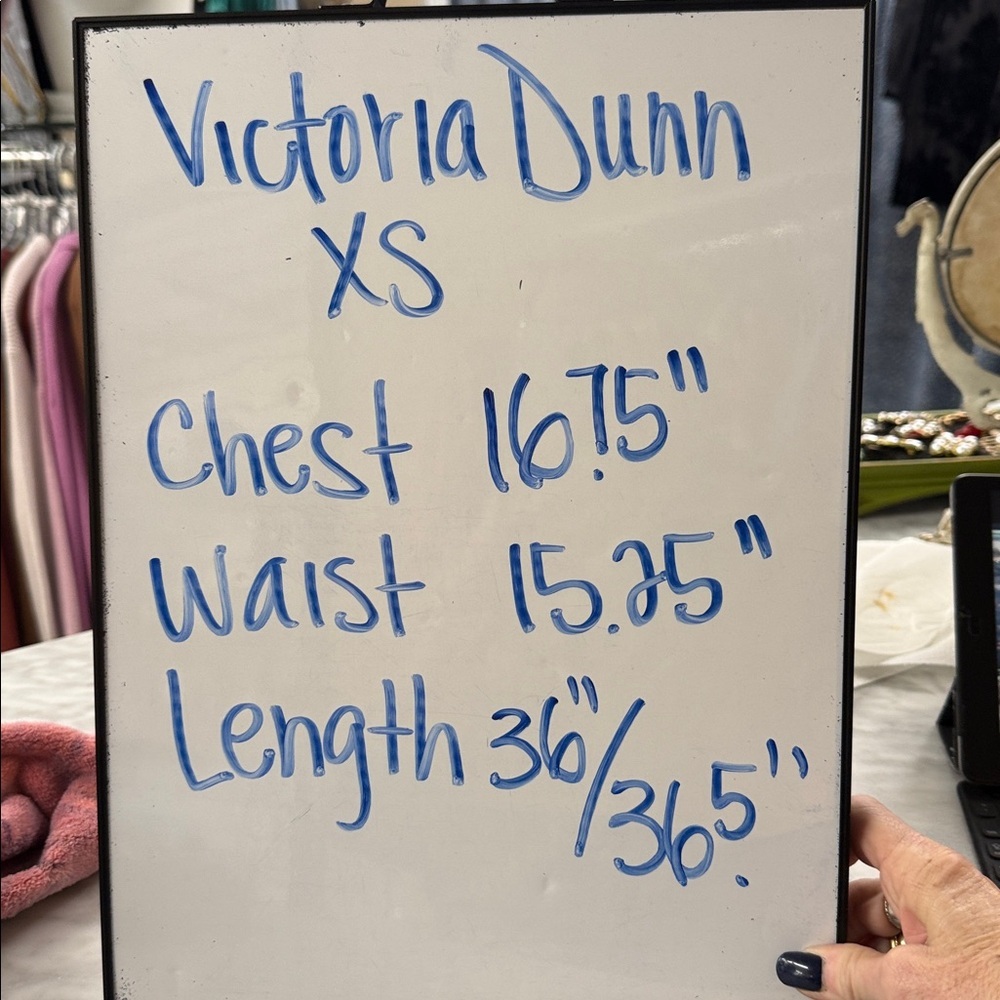 Victoria Dunn
XS
Chest 16.75"
Waist 15.25"
Length 36"/36.5"